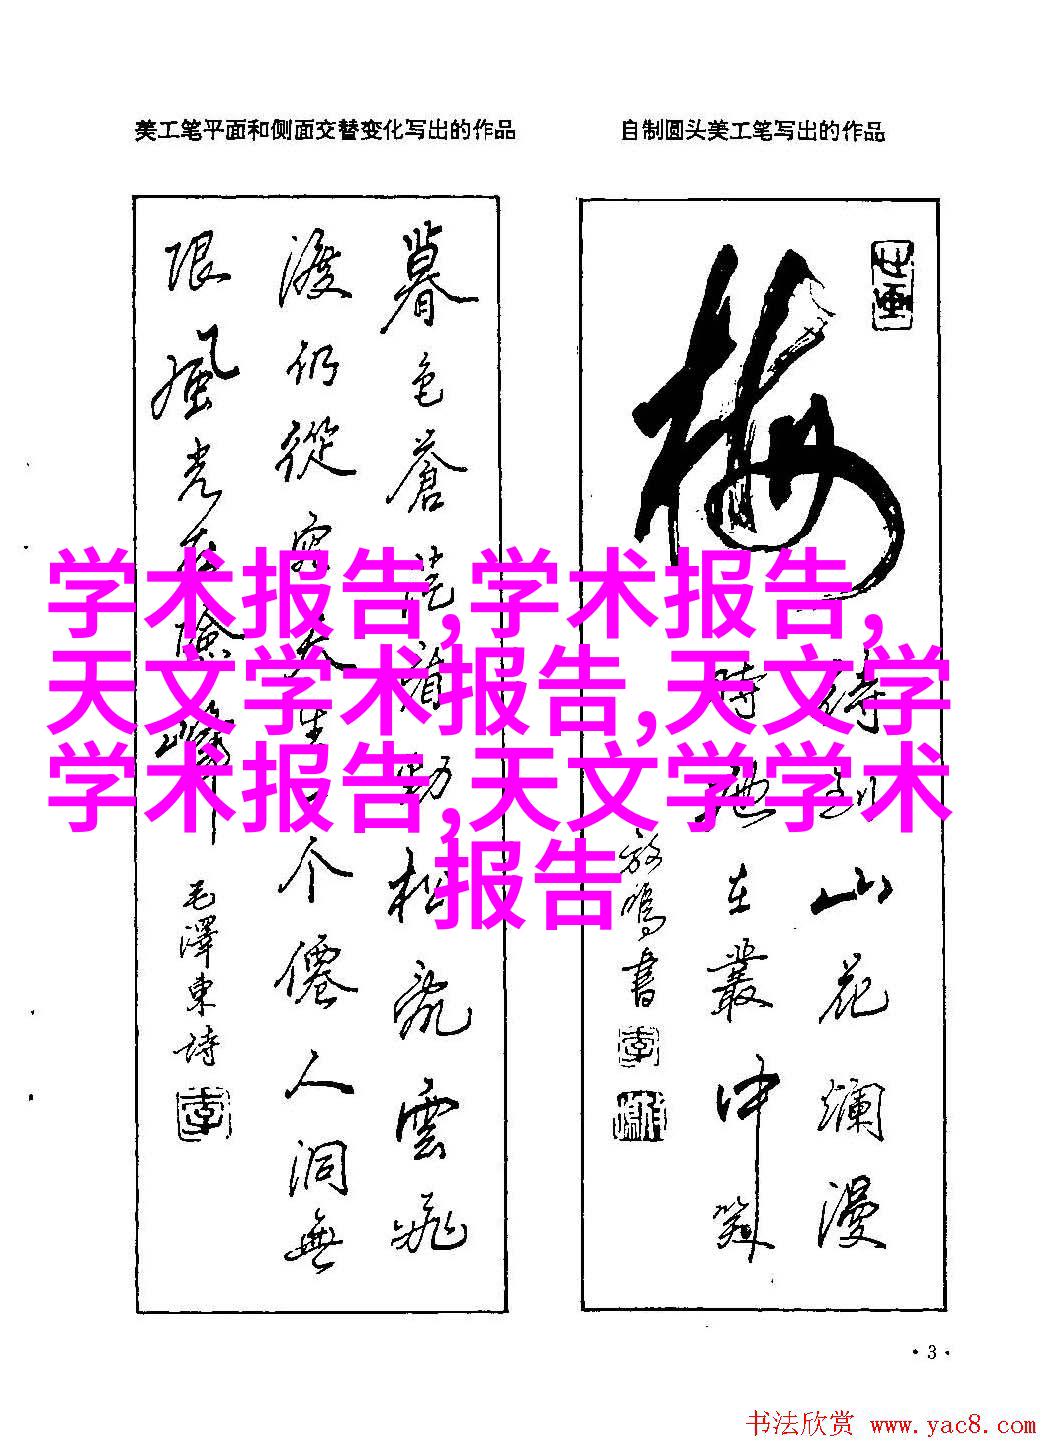 美工笔平面和侧面交替变化写出的作品
自制圆头美工笔写出的作品
暮色苍茫看劲松乱雲飛
渡仍從容天生一个僊人洞無
限風光在險峰
毛澤東詩
梅
待到山花爛漫
時她在叢中笑
書
学术报告,学术报告,
天文学术报告,天文学
学术报告,天文学学术
报告
·3·
书法欣赏 www.yac8.com